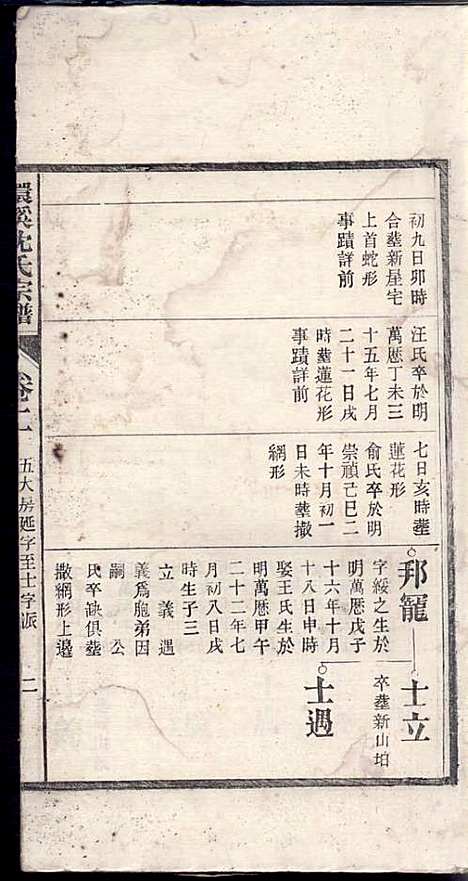 初九日卯時
合葬新屋宅
上首蛇形
事蹟詳前
汪氏卒於明
萬厯丁未三
十五年七月
二十一日戌
時葬蓮花形
事蹟詳前
七日亥時葬
蓮花形
俞氏卒於明
崇禎己巳二
年十月初一
日未時葬撒
網形
邦寵
字綬之生於
明萬厯戊子
十六年十月
十八日申時
娶王氏生於
明萬厯甲午
二十二年七
月初八日戌
時生子三
立義遇
義爲胞弟因
嗣公
氏卒缺俱葬
撒網形上邊
士立
卒葬新山坦
士遇
環溪沈氏宗譜
五大房延字至士字派
二